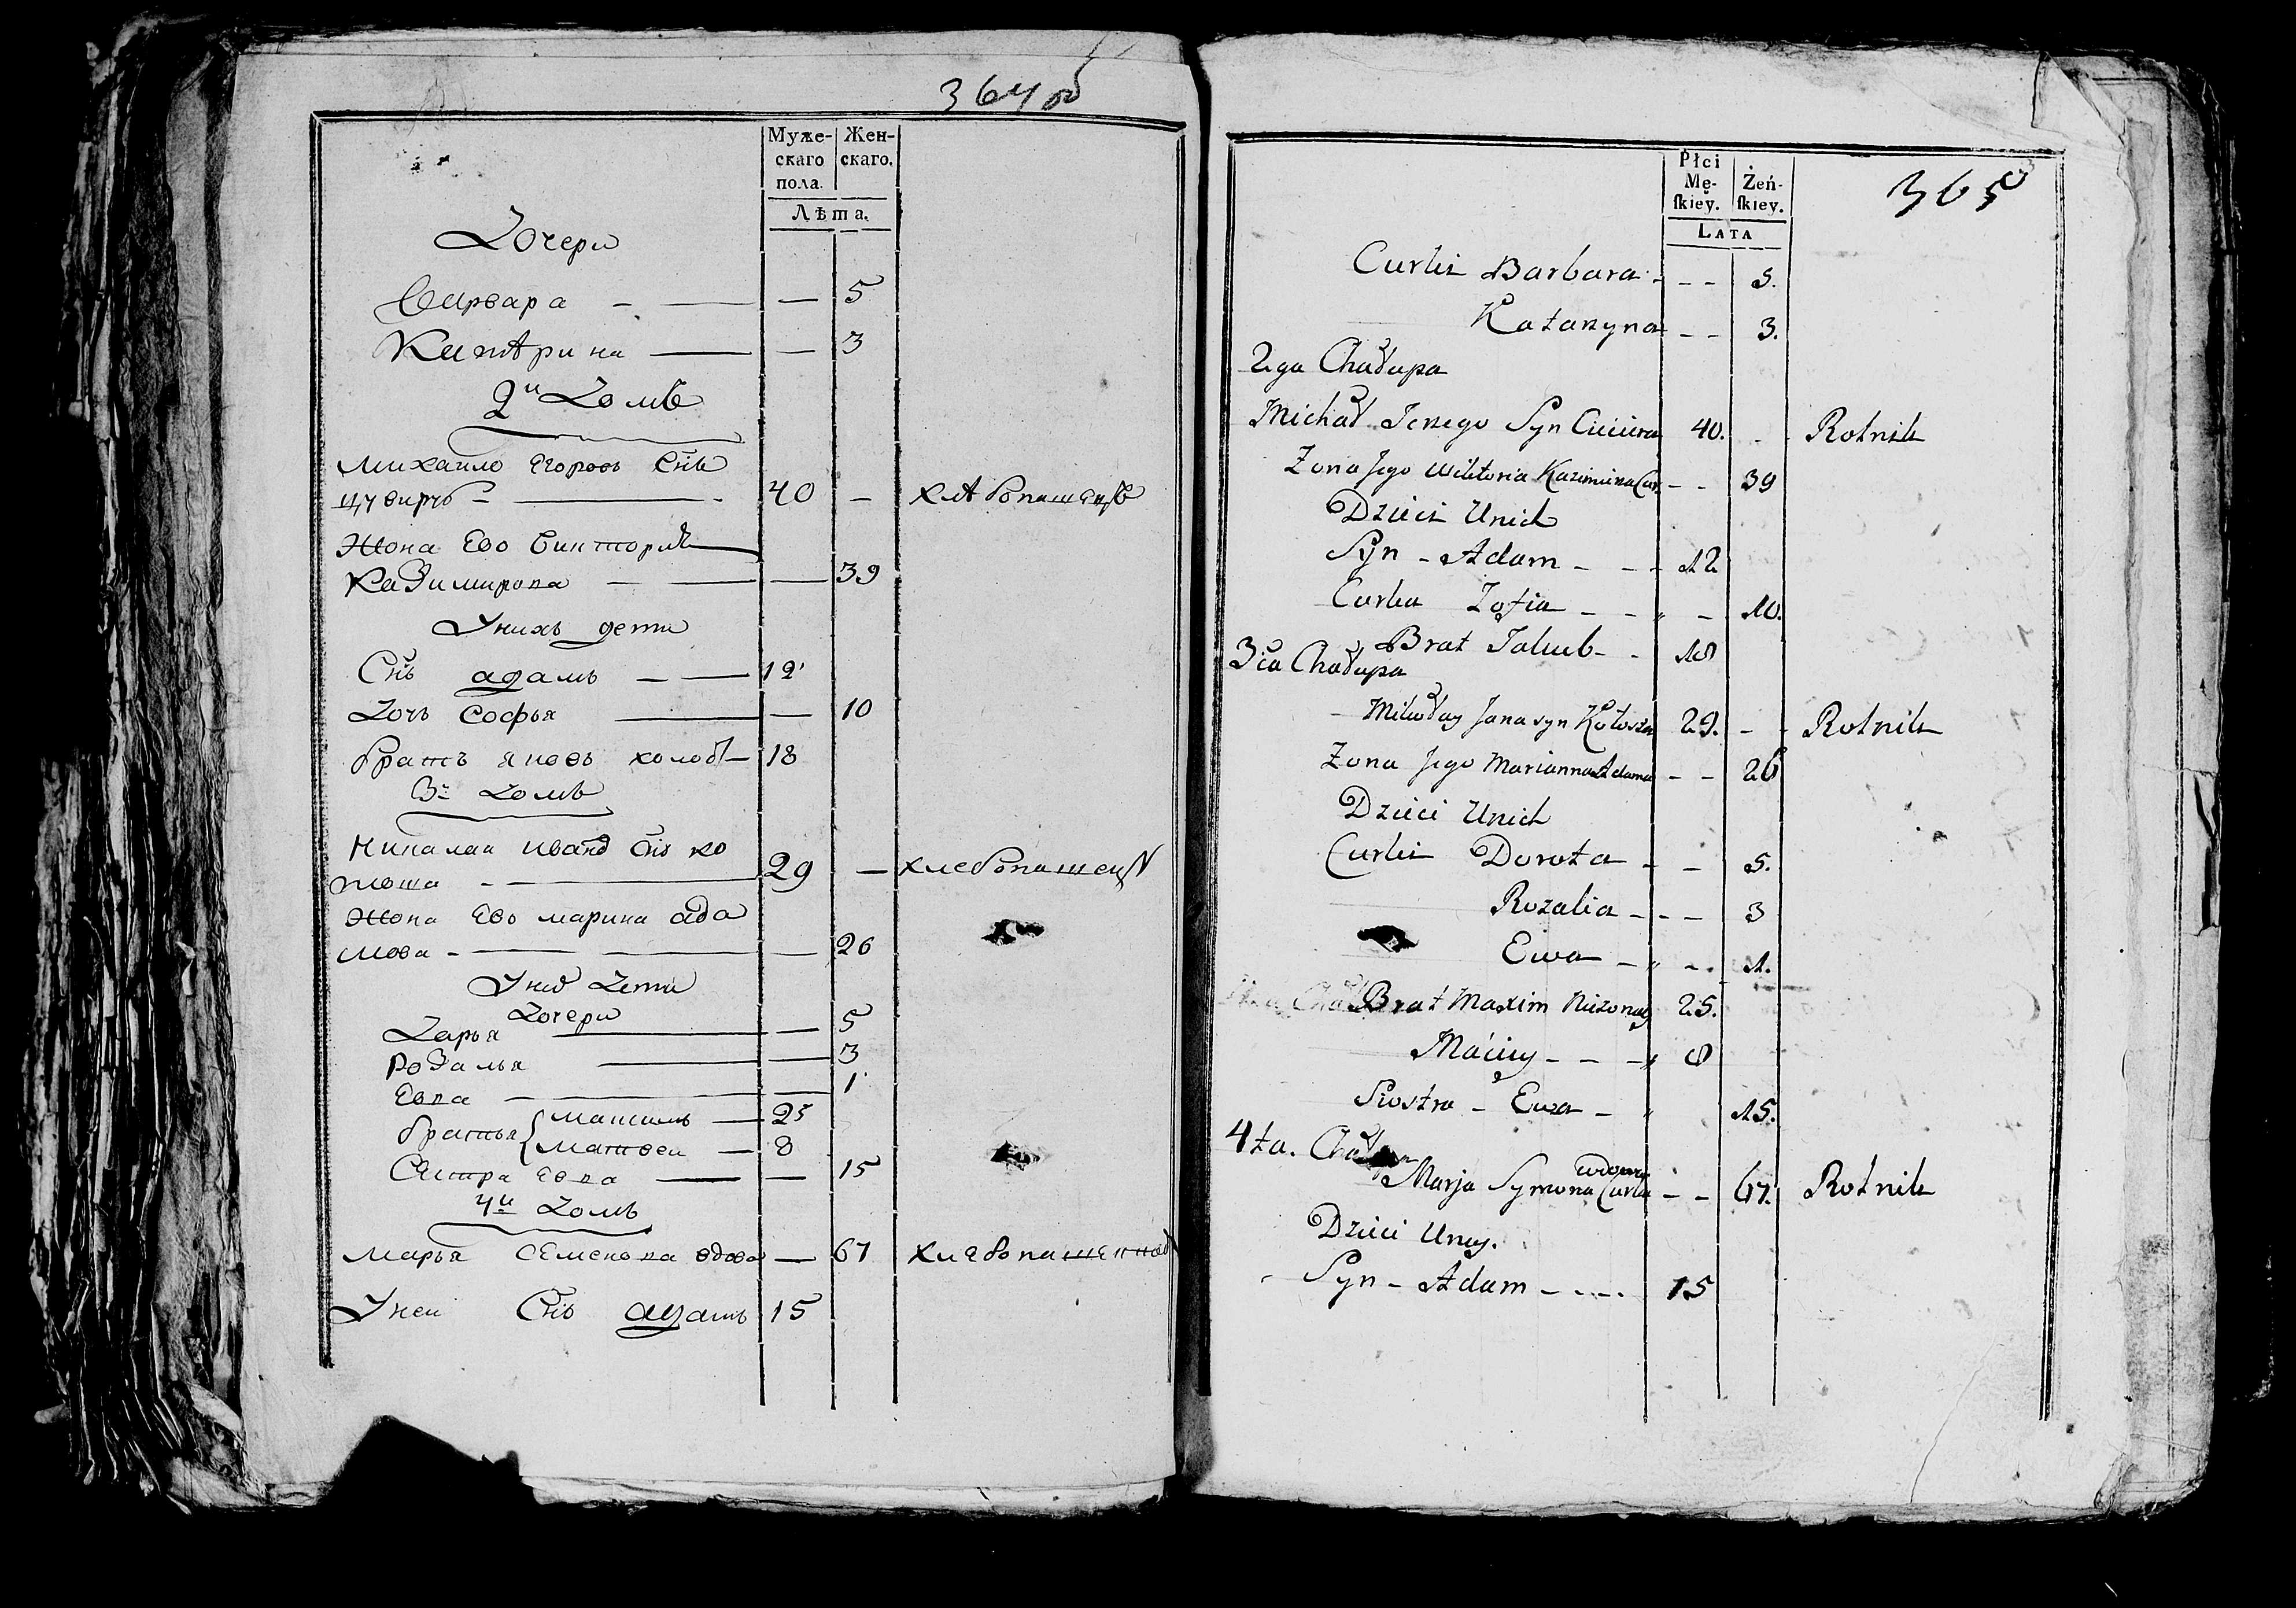 364 об
Муже-
скаго
пола.
Жен-
скаго.
Лѣта.
Дочери
Варвара — — — 5
Катѣрина — — 3
2й Домъ
Михаило Егоровъ Снъ
Цувирчъ — — 40 — хлѣбопашецъ
Жона Ево Викторыя
Казимирова — — — 39
Унихъ дети
Снъ адамъ — — 12
Дочь Софья — — 10
братъ яковъ холоб — 18
3й Домъ
Николаи Иванъ Снъ ко
тоша — — 29 — хлебопашецъ
Жона Ево марина ада
мова — — — 26
Унихъ Дети
Дочери
Дарья — — 5
Розалья — — 3
Евва — — 1
братья { Максимъ — 25
Матвеи — 8
Сестра Евва — — 15
4й Домъ
Марья Семенова вдова — 67
Уней Снъ адамъ 15
365
Płci
Mę-
ſkiey.
Żeń-
ſkiey.
LATA
Curki Barbara - - - 5.
Katarzyna - - 3.
2ga Chałupa
Michał Jerzego Syn 40. - - Rolnik
Zona Jego Wiktoria Kazimierza Cur. - - 39
Dzieci Unich
Syn - Adam - - - 12
Curka Zofia - - " - 10.
Brat Jakub - - 18
3cia Chałupa
Mikołay Jana syn Kołosza 29. - - Rolnik
Zona Jego Marianna Adama - - 26
Dzieci Unich
Curki Dorota - - 5.
Rozalia - - - 3
Ewa - " - . 1.
Brat Maxim Niezonaty 25.
Maciey - - - " 8
Siostra - Ewa - " 15.
4ta. Chałupa
wdowa
Marja Symona Curka - - 67. Rolnik
Dzieci Uniey.
Syn - Adam - . - . 15